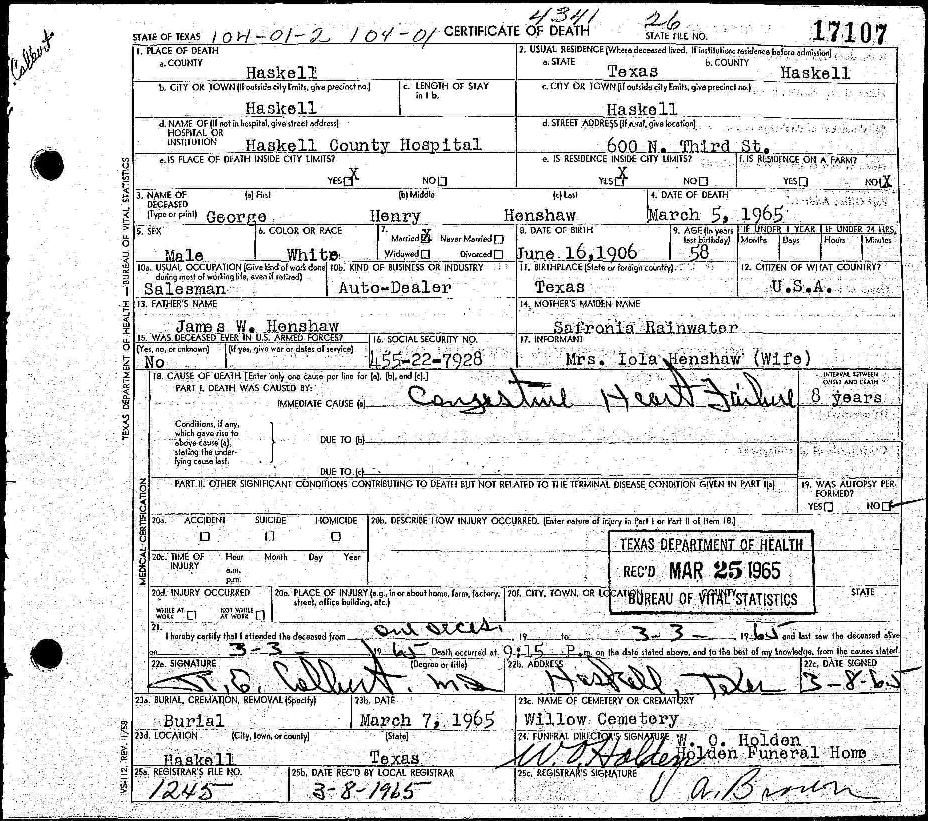 Calbert
STATE OF TEXAS 104-01-2 104-01 CERTIFICATE OF DEATH 4341 STATE FILE NO. 26 17107
1. PLACE OF DEATH
a. COUNTY
Haskell
2. USUAL RESIDENCE (Where deceased lived. If institution: residence before admission)
a. STATE
Texas
b. COUNTY
Haskell
b. CITY OR TOWN (If outside city limits, give precinct no.)
Haskell
c. LENGTH OF STAY in 1 b.
c. CITY OR TOWN (If outside city limits, give precinct no.)
Haskell
d. NAME OF (If not in hospital, give street address) HOSPITAL OR INSTITUTION
Haskell County Hospital
d. STREET ADDRESS (If rural, give location)
600 N. Third St.
e. IS PLACE OF DEATH INSIDE CITY LIMITS?
YES X NO
e. IS RESIDENCE INSIDE CITY LIMITS?
YES X NO
f. IS RESIDENCE ON A FARM?
YES NO X
3. NAME OF DECEASED (Type or print)
(a) First (b) Middle (c) Last
George Henry Henshaw
4. DATE OF DEATH
March 5, 1965
5. SEX
Male
6. COLOR OR RACE
White
7.
Married X Never Married
Widowed Divorced
8. DATE OF BIRTH
June 16,1906
9. AGE (In years last birthday)
58
IF UNDER 1 YEAR
Months Days
IF UNDER 24 HRS.
Hours Minutes
10a. USUAL OCCUPATION (Give kind of work done during most of working life, even if retired)
Salesman
10b. KIND OF BUSINESS OR INDUSTRY
Auto-Dealer
11. BIRTHPLACE (State or foreign country)
Texas
12. CITIZEN OF WHAT COUNTRY?
U.S.A.
13. FATHER'S NAME
James W. Henshaw
14. MOTHER'S MAIDEN NAME
Safronia Rainwater
15. WAS DECEASED EVER IN U.S. ARMED FORCES?
(Yes, no, or unknown) (If yes, give war or dates of service)
No
16. SOCIAL SECURITY NO.
455-22-7928
17. INFORMANT
Mrs. Iola Henshaw (Wife)
18. CAUSE OF DEATH [Enter only one cause per line for (a), (b), and (c).]
PART I. DEATH WAS CAUSED BY:
IMMEDIATE CAUSE (a) Congestive Heart Failure
INTERVAL BETWEEN ONSET AND DEATH
8 years
Conditions, if any, which gave rise to above cause (a), stating the underlying cause last.
DUE TO (b)
DUE TO (c)
PART II. OTHER SIGNIFICANT CONDITIONS CONTRIBUTING TO DEATH BUT NOT RELATED TO THE TERMINAL DISEASE CONDITION GIVEN IN PART I(a)
19. WAS AUTOPSY PERFORMED?
YES NO
20a. ACCIDENT SUICIDE HOMICIDE
20b. DESCRIBE HOW INJURY OCCURRED. (Enter nature of injury in Part I or Part II of item 18.)
20c. TIME OF INJURY
Hour Month Day Year
a.m.
p.m.
TEXAS DEPARTMENT OF HEALTH
REC'D MAR 25 1965
BUREAU OF VITAL STATISTICS
20d. INJURY OCCURRED
WHILE AT WORK NOT WHILE AT WORK
20e. PLACE OF INJURY (e.g., in or about home, farm, factory, street, office building, etc.)
20f. CITY, TOWN, OR LOCATION COUNTY STATE
21. I hereby certify that I attended the deceased from 19 to 3-3- 1965 and last saw the deceased alive
on 3-3- 1965 Death occurred at 9:15 P.m. on the date stated above, and to the best of my knowledge, from the causes stated.
22a. SIGNATURE (Degree or title)
Colbert, MD
22b. ADDRESS
Haskell, Texas
22c. DATE SIGNED
3-8-65
23a. BURIAL, CREMATION, REMOVAL (Specify)
Burial
23b. DATE
March 7, 1965
23c. NAME OF CEMETERY OR CREMATORY
Willow Cemetery
23d. LOCATION (City, town, or county) (State)
Haskell Texas
24. FUNERAL DIRECTOR'S SIGNATURE
W.O. Holden
W. O. Holden
Holden Funeral Home
25a. REGISTRAR'S FILE NO.
1245
25b. DATE REC'D BY LOCAL REGISTRAR
3-8-1965
25c. REGISTRAR'S SIGNATURE
V A. Brown
TEXAS DEPARTMENT OF HEALTH—BUREAU OF VITAL STATISTICS
MEDICAL CERTIFICATION